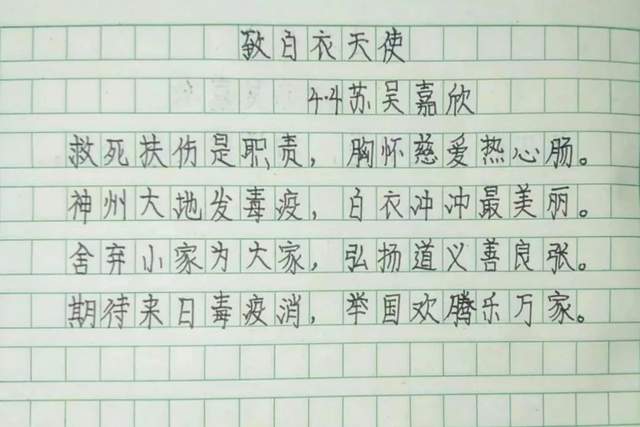 致白衣天使
4.4苏吴嘉欣
救死扶伤是职责，胸怀慈爱热心肠。
神州大地发毒疫，白衣冲冲最美丽。
舍弃小家为大家，弘扬道义善良张。
期待来日毒疫消，举国欢腾乐万家。